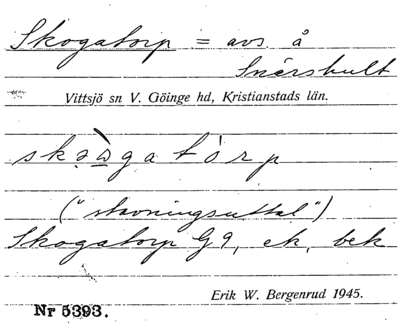 Skogatorp = avs. å
Snärshult
Vittsjö sn V. Göinge hd, Kristianstads län.
("stavningsuttal")
Skogatorp G 9, ek, bek
Erik W. Bergenrud 1945.
Nr 5393.